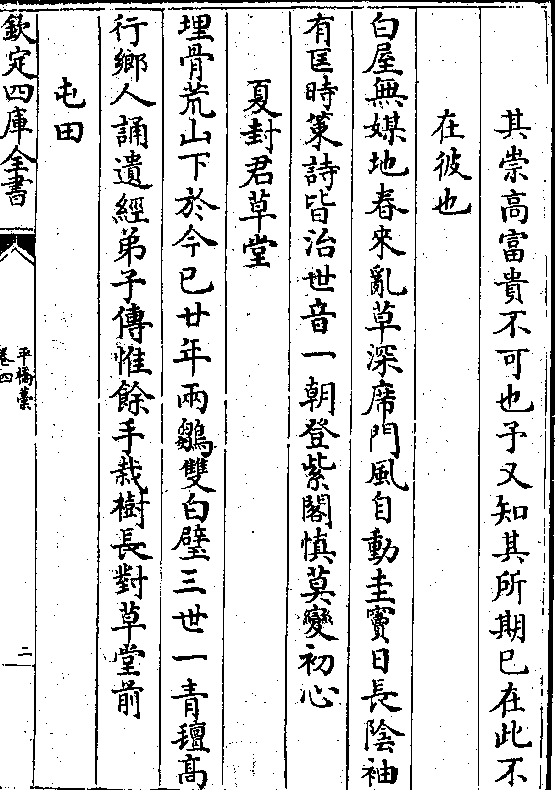 其崇高富貴不可也予又知其所期已在此不
在彼也
白屋無媒地春來亂草深席門風自動圭竇日長陰袖
有匡時策詩皆治世音一朝登紫閣慎莫變初心
夏封君草堂
埋骨荒山下於今已廿年兩鶵雙白璧三世一青氊高
行鄉人誦遺經弟子傳惟餘手栽樹長對草堂前
屯田
欽定四庫全書
平橋藁
卷四
二